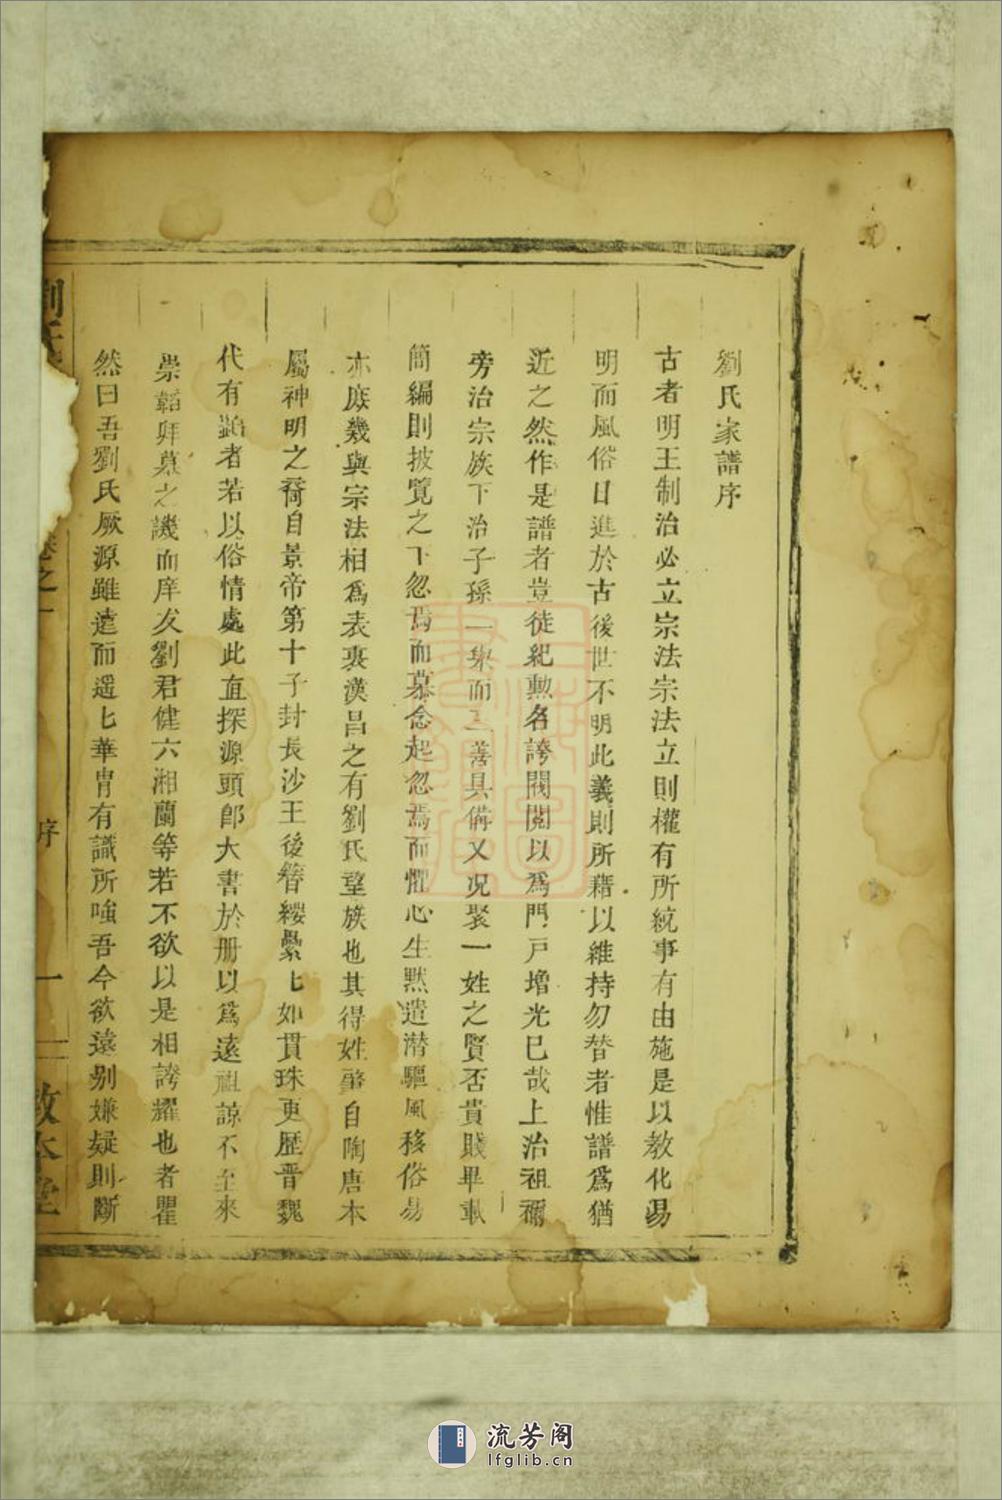 劉氏家譜序
古者明王制治必立宗法宗法立則權有所統事有由施是以教化易
明而風俗日進於古後世不明此義則所藉以維持勿替者惟譜為猶
近之然作是譜者豈徒紀勲名誇閥閱以為門戸增光已哉上治祖禰
旁治宗族下治子孫一舉而三善具備又况聚一姓之賢否貴賤畢載
簡編則披覽之下忽焉而慕念起忽焉而懼心生黙遣潜驅風移俗易
亦庶幾與宗法相為表裏漢昌之有劉氏望族也其得姓肇自陶唐本
屬神明之裔自景帝第十子封長沙王後簪纓纍匕如貫珠更歷晋魏
代有顯者若以俗情處此直探源頭郎大書於册以為遠祖諒不至來
崇韜拜墓之譏而庠友劉君健六湘蘭等若不欲以是相誇耀也者瞿
然曰吾劉氏厥源雖遠而遥匕華胄有識所嗤吾今欲遠别嫌疑則斷
劉氏
卷之一
序
一
敦本堂
流芳阁
lfglib.cn